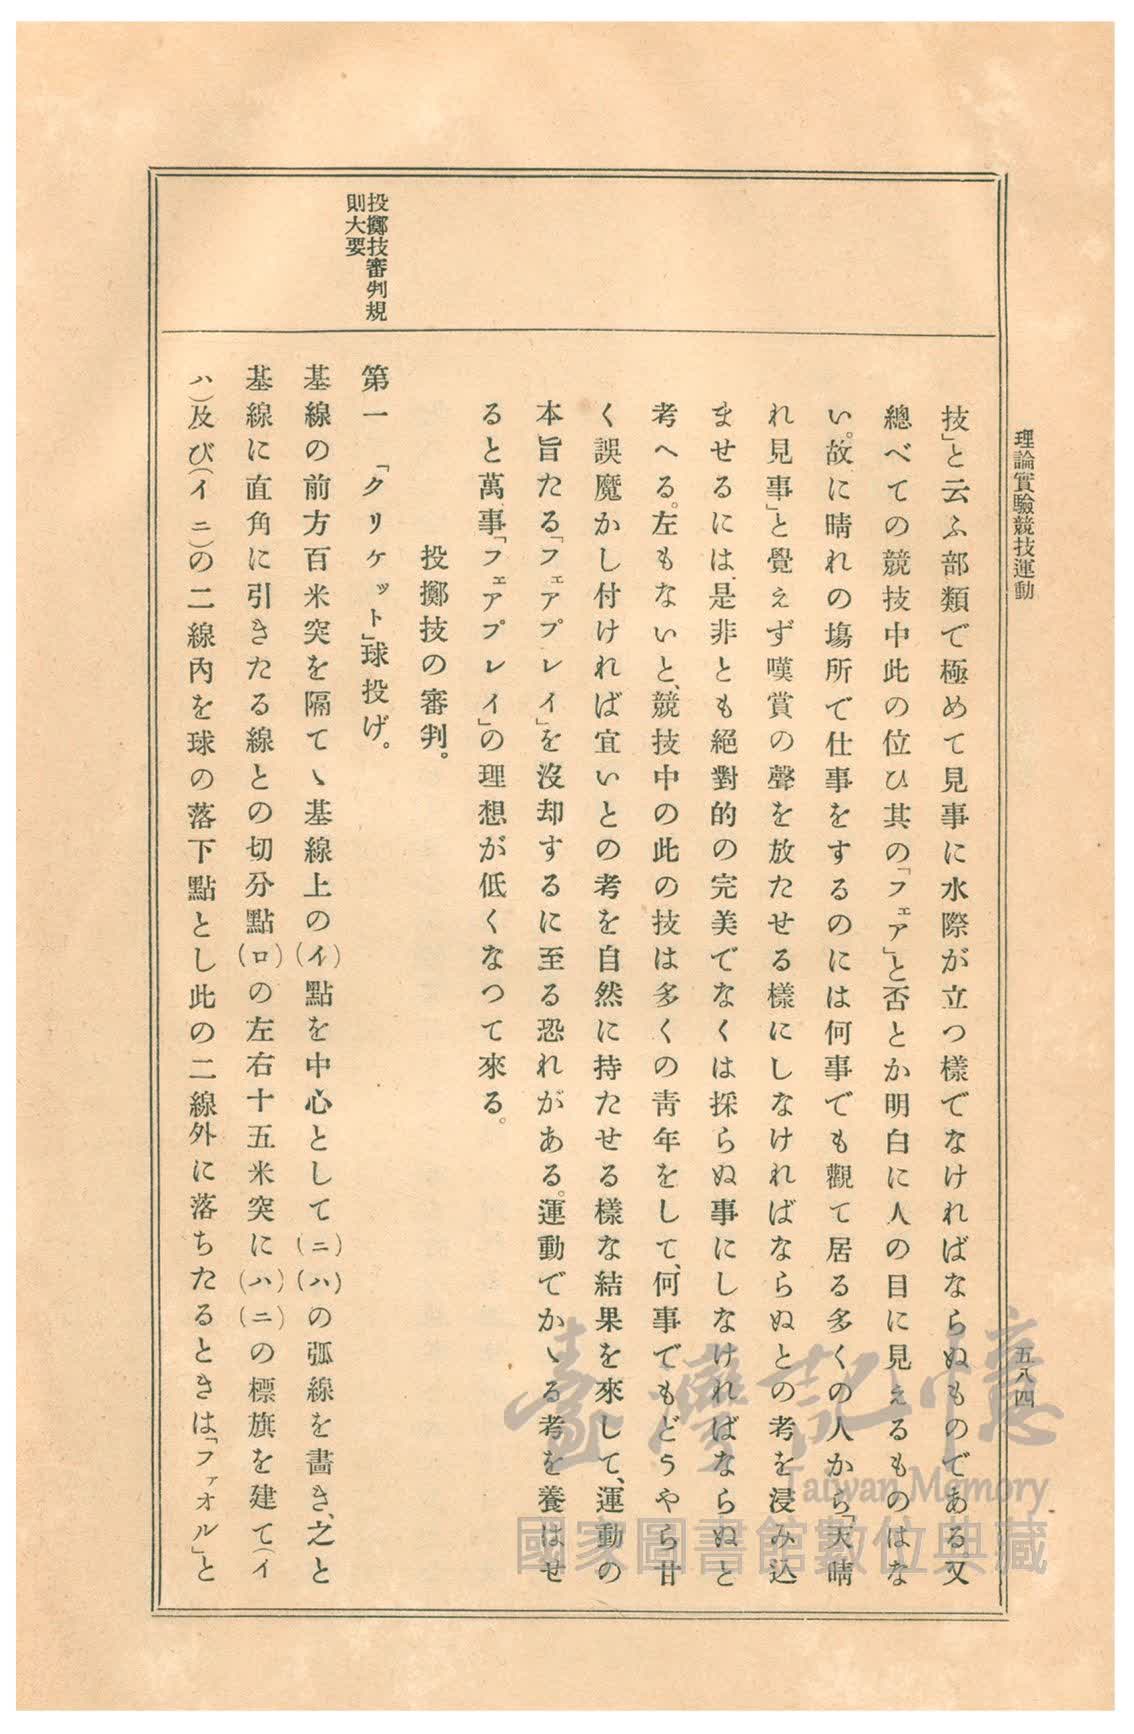 理論實驗競技運動
五八四
技」と云ふ部類で極めて見事に水際が立つ樣でなければならぬものである又
總べての競技中此の位ひ其の「フェア」と否とか明白に人の目に見えるものはな
い。故に晴れの塲所で仕事をするのには何事でも觀て居る多くの人から「天晴
れ見事」と覺えず嘆賞の聲を放たせる樣にしなければならぬとの考を浸み込
ませるには、是非とも絕對的の完美でなくは採らぬ事にしなければならぬと
考へる。左もないと、競技中の此の技は多くの靑年をして、何事でもどうやら甘
く誤魔かし付ければ宜いとの考を自然に持たせる樣な結果を來して、運動の
本旨たる「フェアプレイ」を沒却するに至る恐れがある。運動でかゝる考を養はせ
ると萬事「フェアプレイ」の理想が低くなつて來る。
投擲技の審判。
投擲技審判規
則大要
第一 「クリケット」球投げ。
基線の前方百米突を隔てゝ基線上の(イ)點を中心として(ニ)(ハ)の弧線を畵き、之と
基線に直角に引きたる線との切分點(ロ)の左右十五米突に(ハ)(ニ)の標旗を建て(イ
ハ)及び(イニ)の二線內を球の落下點とし此の二線外に落ちたるときは「ファオル」と
臺灣記憶
Taiwan Memory
國家圖書館數位典藏